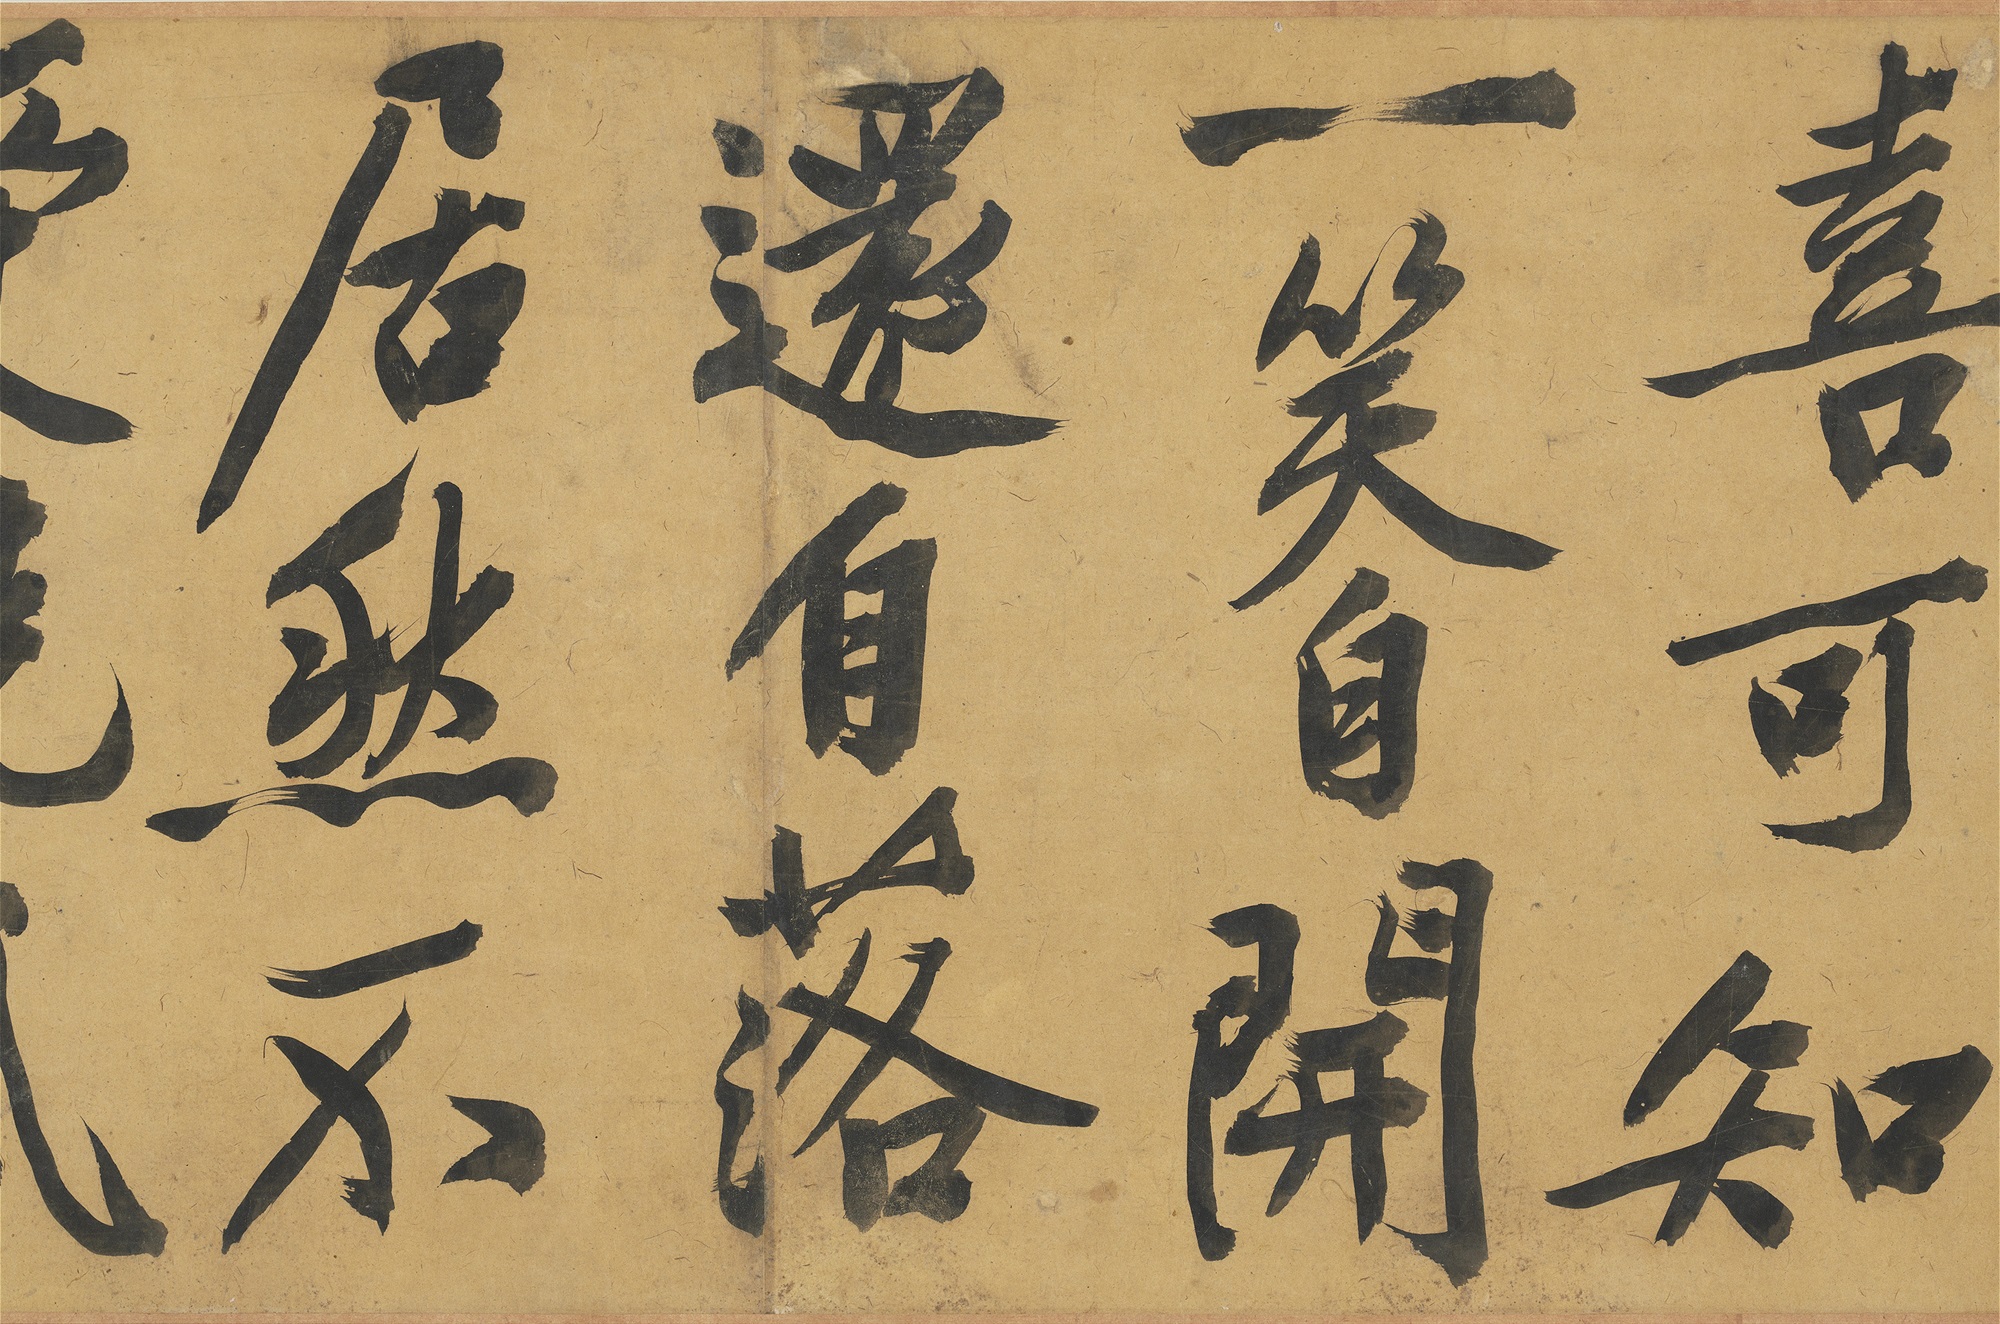 喜可知
一笑自開
還自落
居然不